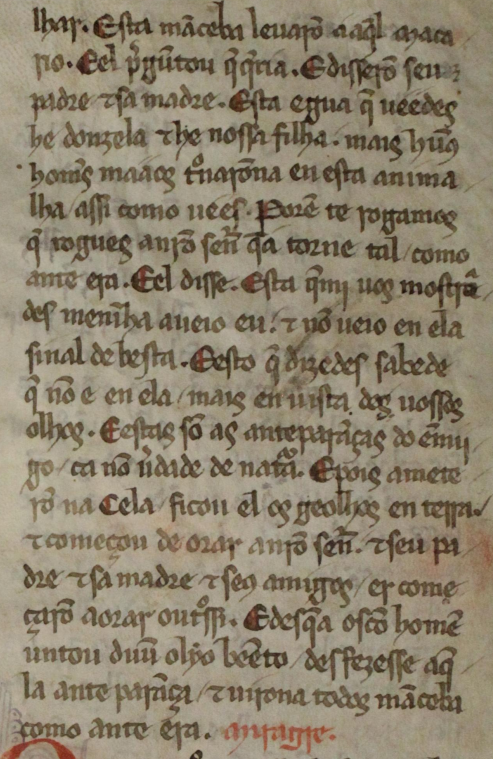 lhar. Esta mãceba leuarõ a aq̃l maca
rio. E el p̃gũtou q̃ q̃ria. E disserõ seu
padre ⁊ sa madre. Esta egua q̃ ueedes
he donzela ⁊ he nossa filha. mais hũus
homẽs maaos tͦnarõna en esta anima
lha / assi como uees. Porẽ te rogamos
q̃ rogues a nr̃o señ q̃a torne tal / como
ante era. E el disse. Esta q̃ mi uos mostra
des meninha a ueio eu. ⁊ nõ ueio en ela
sinal de besta. E esto q̃ dizedes sabede
q̃ nõ e en ela / mais en uista dos uossos
olhos. E estas sõ as anteparãças do ẽmi
go / ca nõ ũdade de nat̃a. E pois a mete
rõ na Cela / ficou el os geolhos en terra.
⁊ começou de orar a nr̃o señ. ⁊ seu pa
dre ⁊ sa madre ⁊ seus amigos / er come
çarõ a orar outͦssi. E des q̃a o scõ homẽ
untou dũu olyo bẽeto / desfezesse aq̃
la ante parãça / ⁊ uirona todos mãceba
como ante era.